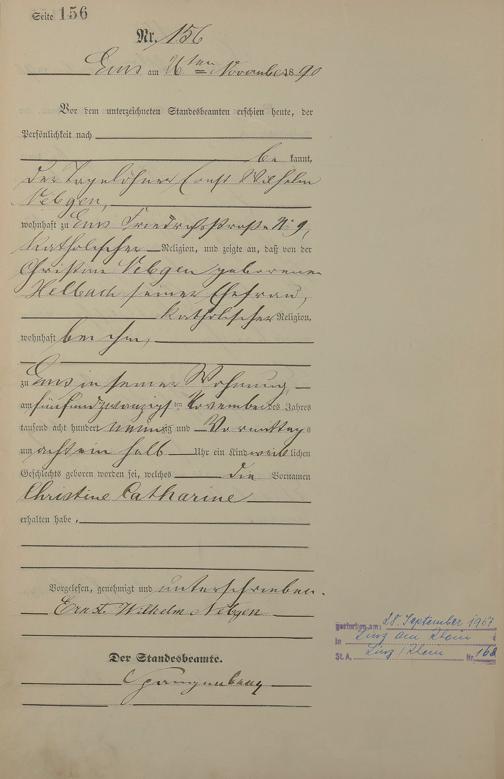 Seite 156
Nr. 156
Ems am 26ten November 1890
Vor dem unterzeichneten Standesbeamten erschien heute, der
Persönlichkeit nach
be kannt,
der Tagelöhner Ernst Wilhelm
Nebgen,
wohnhaft zu Ems Friedrichsstraße No 9,
katholischer Religion, und zeigte an, daß von der
Christine Nebgen geborenen
Helbach seiner Ehefrau,
katholischer Religion,
wohnhaft bei ihm,
zu Ems in seiner Wohnung,
am fünfundzwanzigsten November des Jahres
tausend acht hundert neunzig und Vormittags
um acht ein halb Uhr ein Kind weiblichen
Geschlechts geboren worden sei, welches die Vornamen
Christine Catharine
erhalten habe.
Vorgelesen, genehmigt und unterschrieben.
Ernst Wilhelm Nebgen
Der Standesbeamte.
gestorben am: 28. September 1967
in Linz am Rhein
St. A. Linz/Rhein Nr. 168